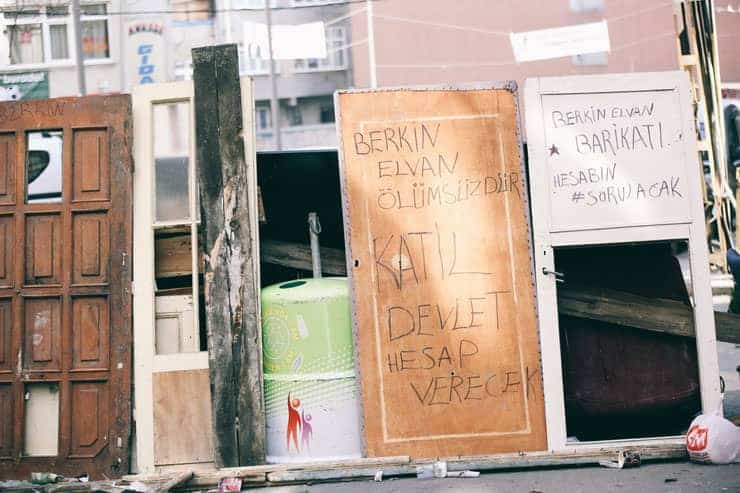 BERKIN
GIDA
BERKİN
ELVAN
ÖLÜMSÜZDÜR
KATİL
DEVLET
HESAP
VERECEK
BERKİN ELVAN
BARİKATI
HESABIN
#SORULACAK